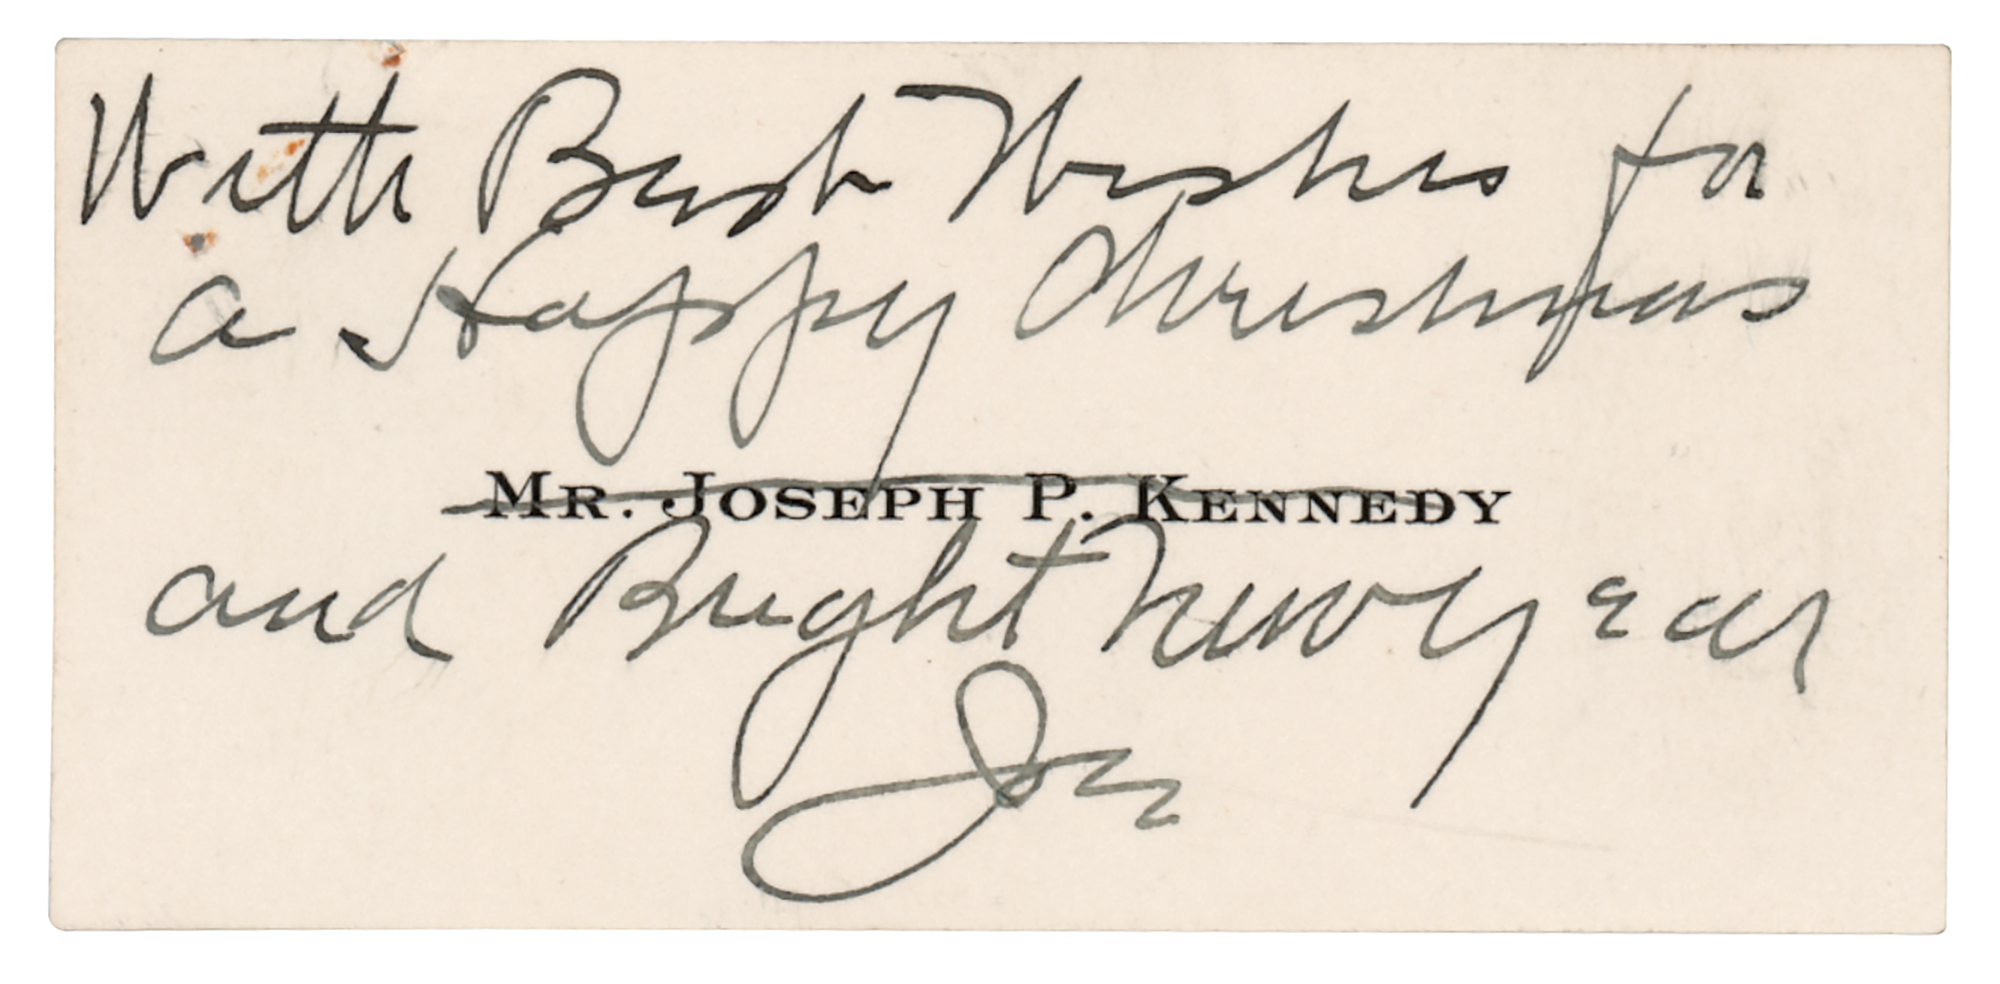 With Best Wishes for
a Happy Christmas
MR. JOSEPH P. KENNEDY
and Bright New Year
Joe